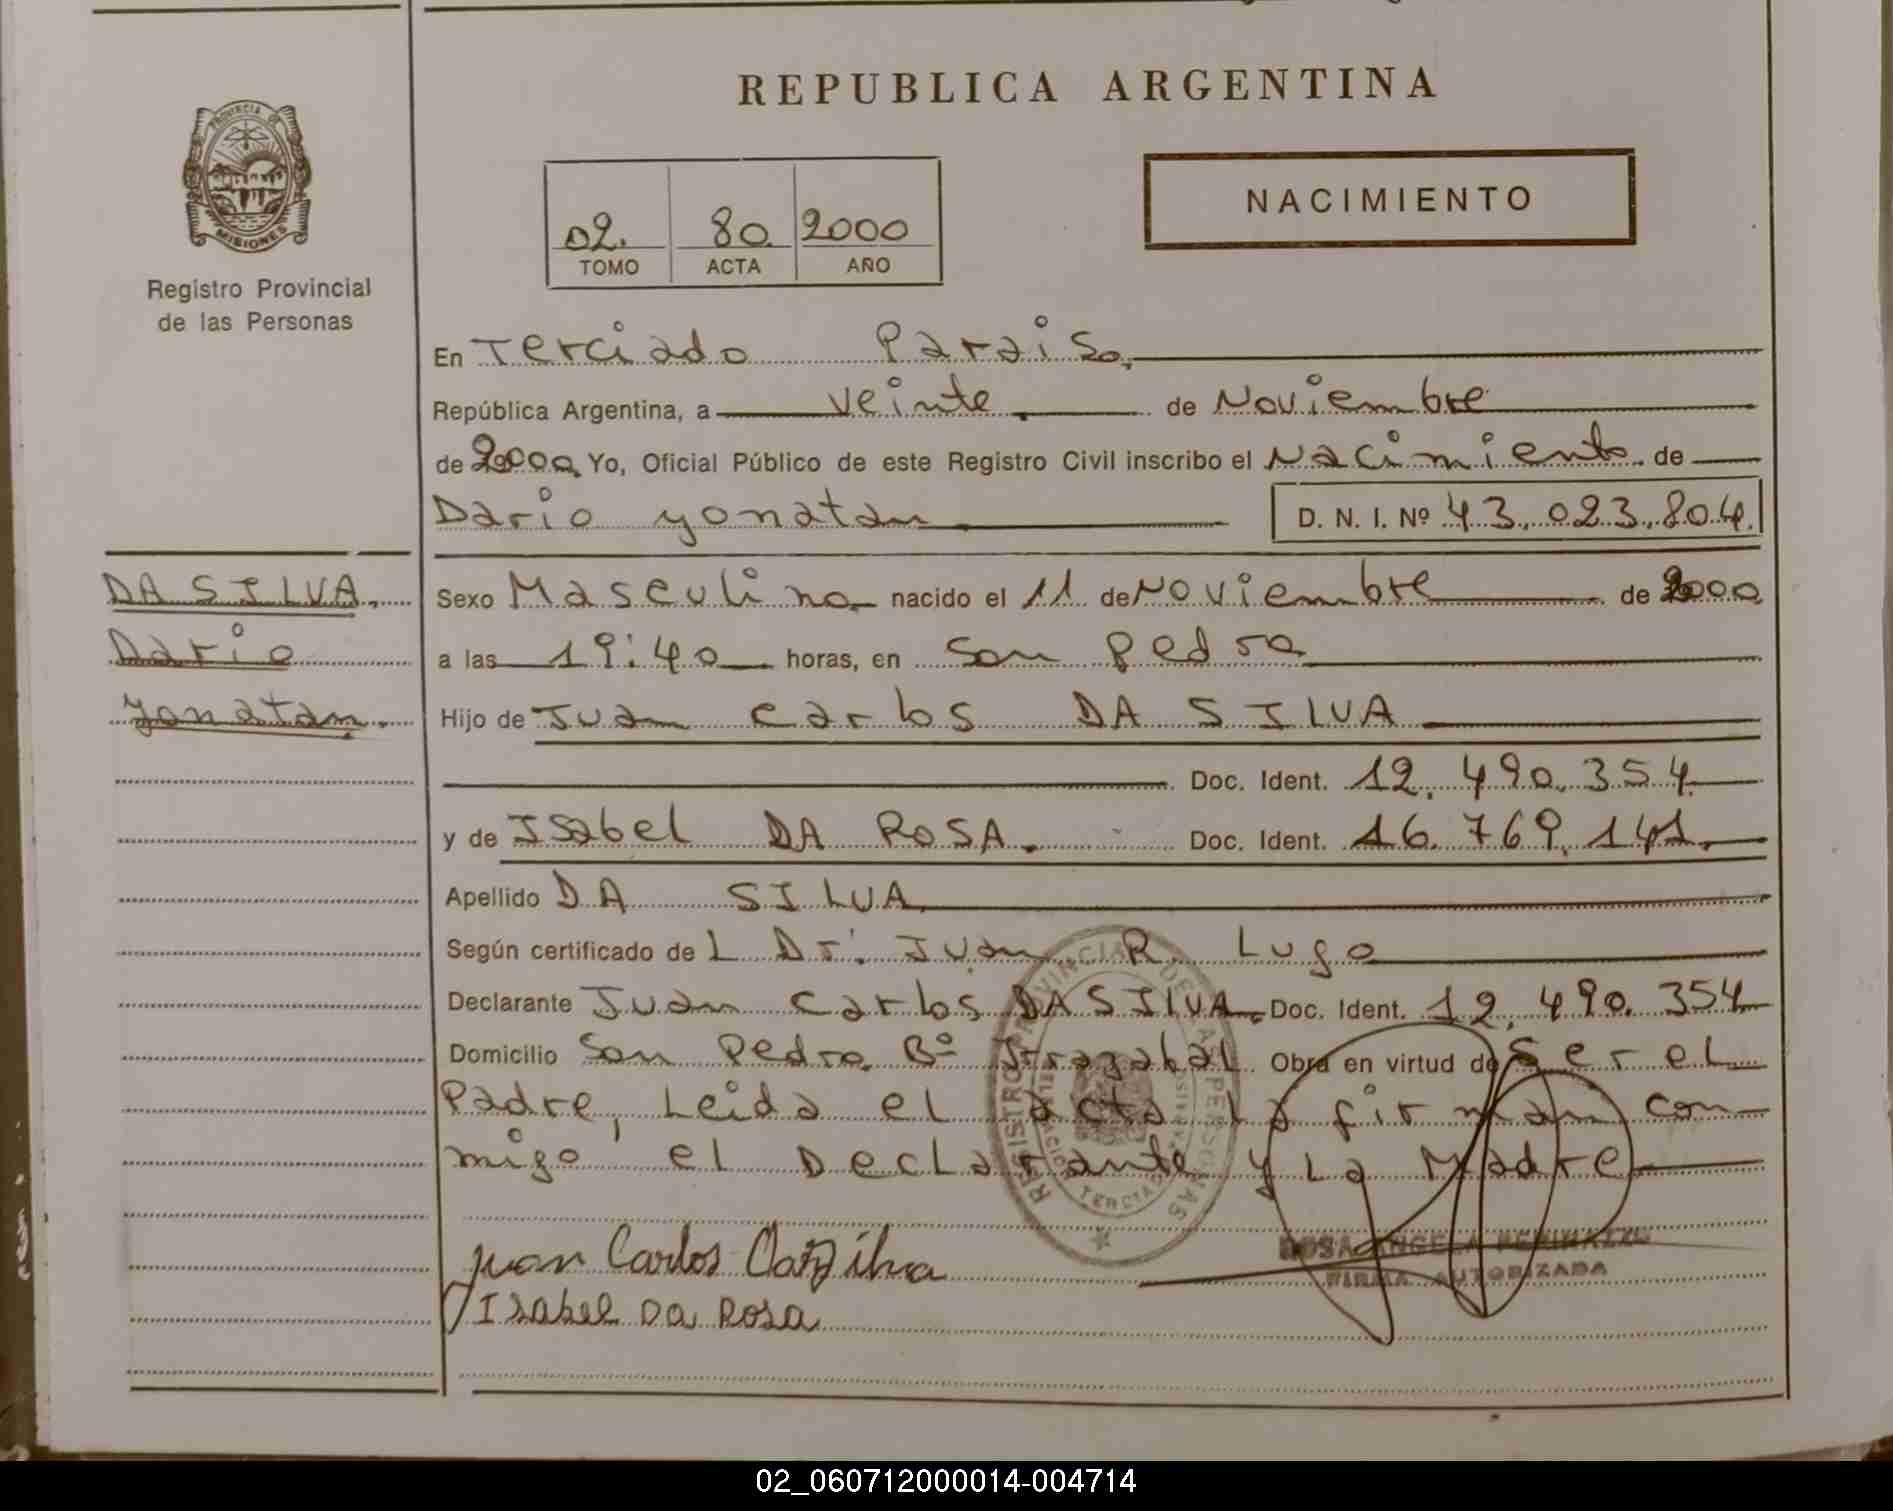 REPUBLICA ARGENTINA
PROVINCIA DE
MISIONES
Registro Provincial
de las Personas
02. 80. 2000
TOMO ACTA AÑO
NACIMIENTO
En Terciado Paraiso,
República Argentina, a veinte. de Noviembre
de 2000. Yo, Oficial Público de este Registro Civil inscribo el Nacimiento de
Dario yonatan D. N. I. Nº 43.023.804.
DA SILVA,
Dario
yonatan.
Sexo Masculino nacido el 11 de Noviembre de 2000
a las 19:40 horas, en San Pedro
Hijo de Juan Carlos DA SILVA
Doc. Ident. 12.490.354
y de Isabel DA ROSA. Doc. Ident. 16.769.141.
Apellido DA SILVA
Según certificado del Dr. Juan R. Lugo
Declarante Juan Carlos DA SILVA. Doc. Ident. 12.490.354
Domicilio San Pedro. Bº Irrazabal Obra en virtud de Ser el
Padre, Leida el acta la firman con
migo el Declarante y La Madre
REGISTRO PROVINCIAL DE LAS PERSONAS
Juan Carlos Da Silva
Isabel Da Rosa
ROSA ANGELA
FIRMA AUTORIZADA
02_060712000014-004714